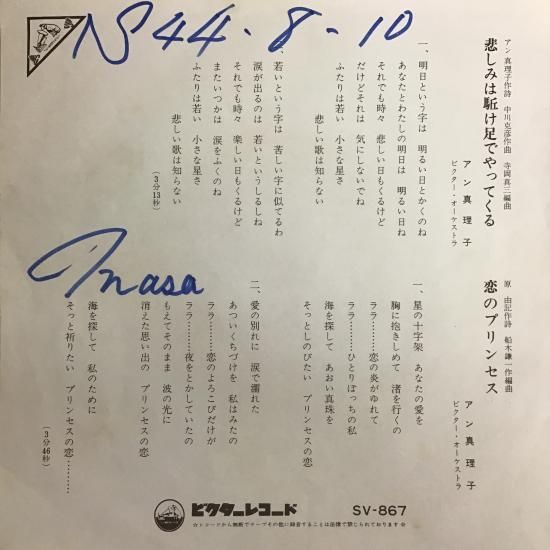 S44-8-10
悲しみは駈け足でやってくる
アン真理子作詩 中川克彦作曲 寺岡真三編曲
アン真理子
ビクター・オーケストラ
一、明日という字は 明るい日とかくのね
あなたとわたしの明日は 明るい日ね
それでも時々 悲しい日もくるけど
だけどそれは 気にしないでね
ふたりは若い 小さな星さ
悲しい歌は知らない
二、若いという字は 苦しい字に似てるわ
涙が出るのは 若いというしるしね
それでも時々 楽しい日もくるけど
またいつかは 涙をふくのね
ふたりは若い 小さな星さ
悲しい歌は知らない
(3分13秒)
恋のプリンセス
原 由記作詩 船木謙一作編曲
アン真理子
ビクター・オーケストラ
一、星の十字架 あなたの愛を
胸に抱きしめて 渚を行くの
ララ………恋の炎がゆれて
ララ………ひとりぼっちの私
海を探して あおい真珠を
そっとしのびたい プリンセスの恋
二、愛の別れに 涙で濡れた
あついくちづけを 私はみたの
ララ………恋のよろこびだけが
ララ………夜をとかしていたの
もえてそのまま 波の光に
消えた思い出の プリンセスの恋
海を探して 私のために
そっと祈りたい プリンセスの恋………
(3分46秒)
masa
ビクターレコード
SV-867
☆レコードから無断でテープその他に録音することは法律で禁じられております☆